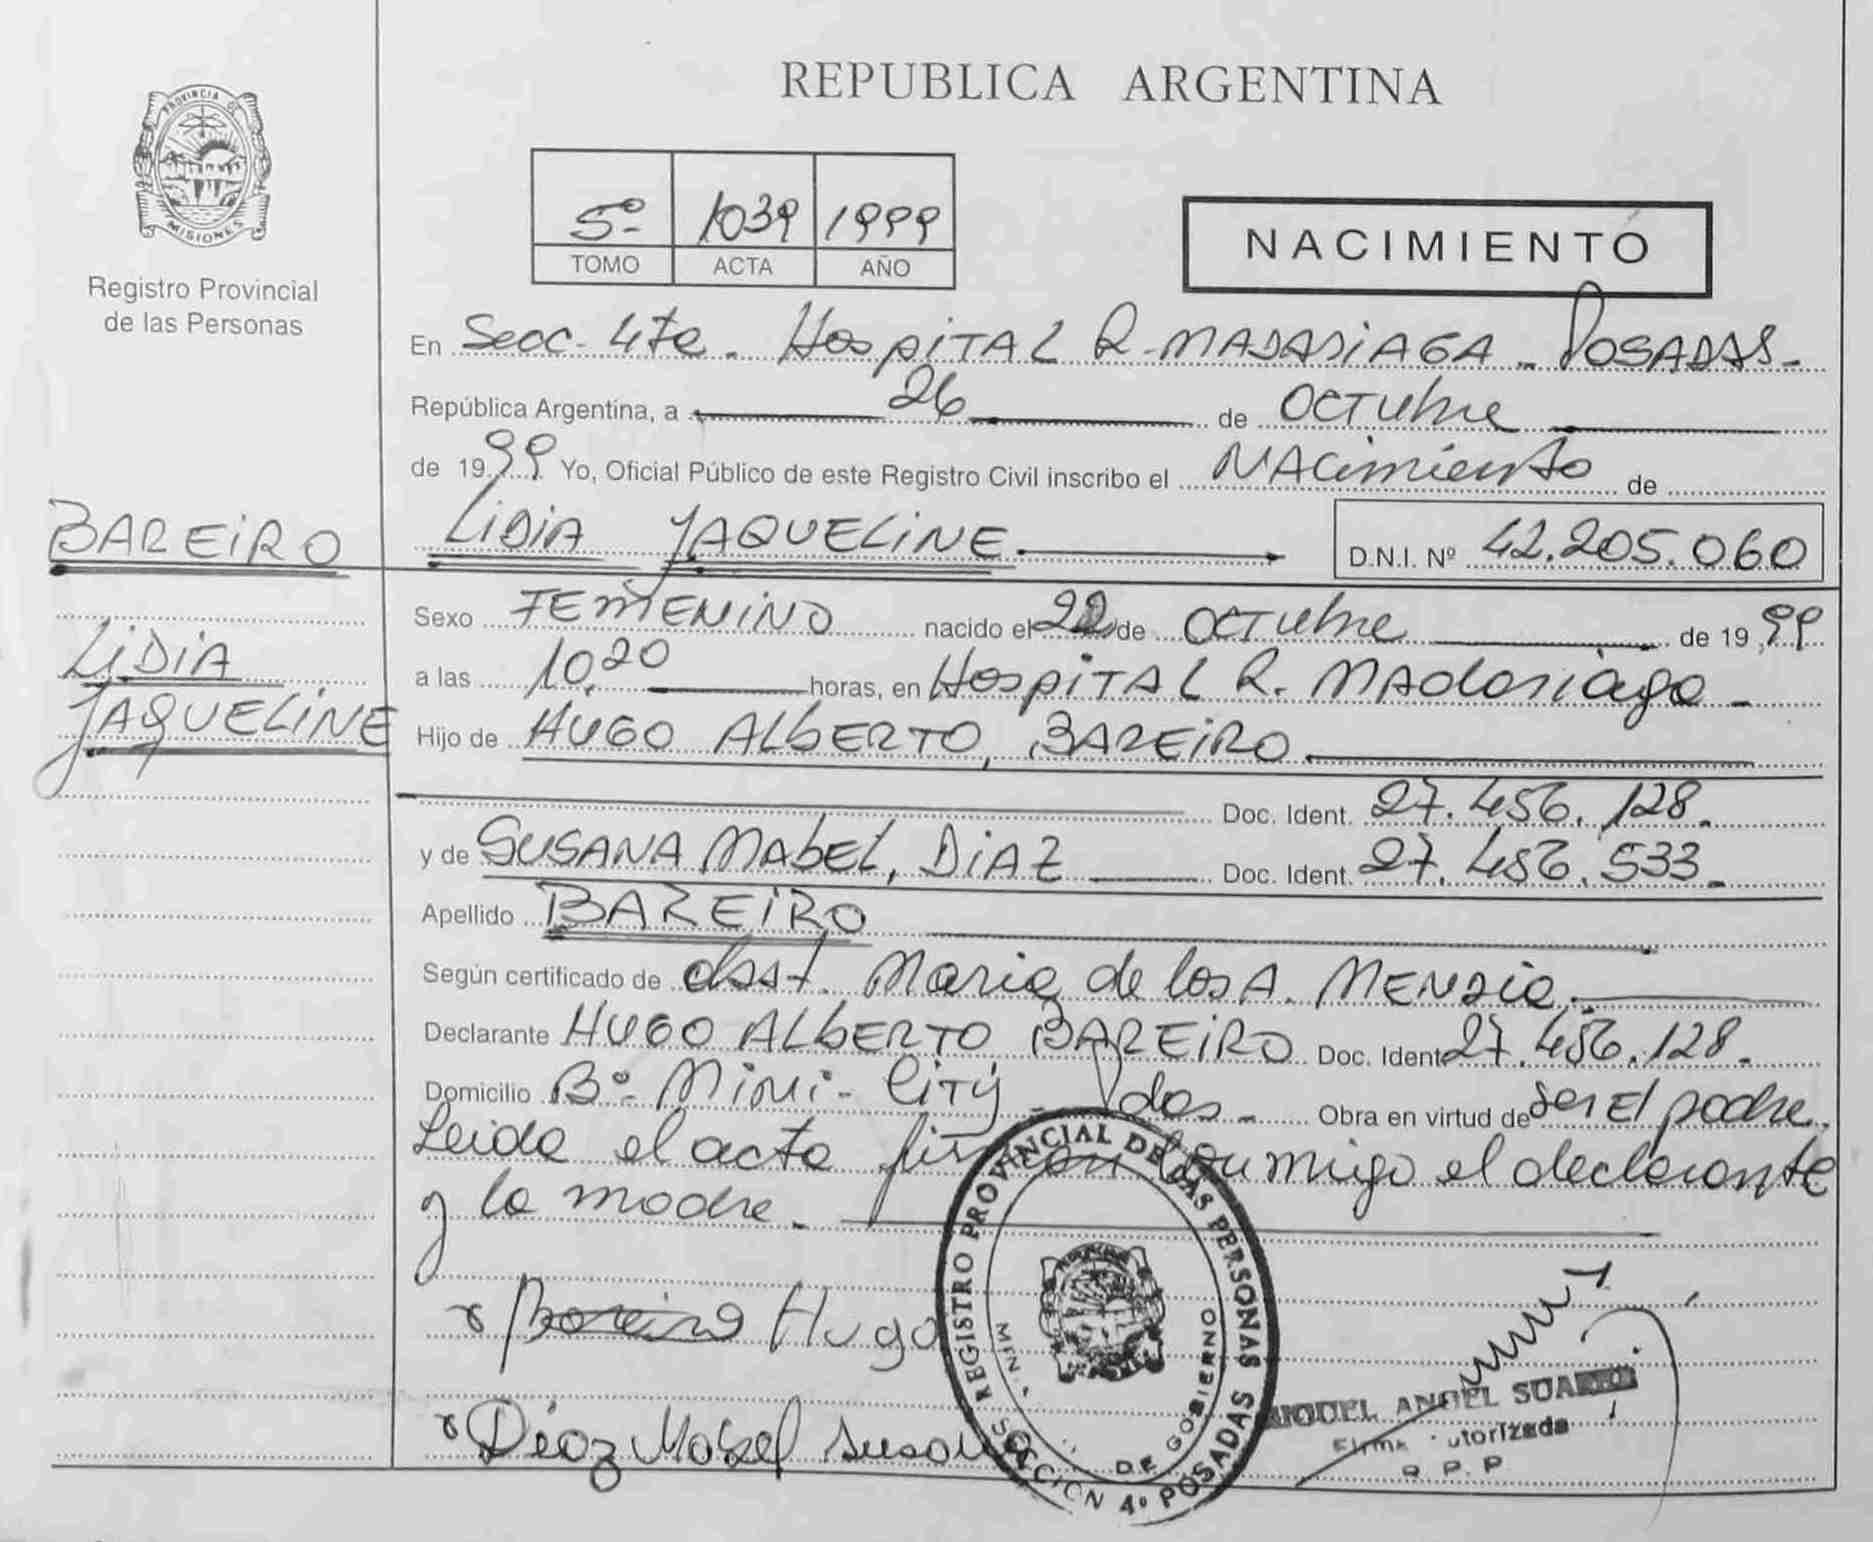 REPUBLICA ARGENTINA
PROVINCIA DE
MISIONES
Registro Provincial
de las Personas
5º 1039 1999
TOMO ACTA AÑO
NACIMIENTO
En Secc. 4ta. HOSPITAL R. MADARIAGA - POSADAS -
República Argentina, a 26 de OCTUbre
de 1999 Yo, Oficial Público de este Registro Civil inscribo el NACimiento de
BAREIRO LIDIA JAQUELINE D.N.I. Nº 42.205.060
LIDIA
JAQUELINE
Sexo FEMENINO nacido el 22 de OCTUbre de 1999
a las 10,20 horas, en HOSPITAL R. MAdariaga -
Hijo de HUGO ALbERTO, BAREIRO
Doc. Ident. 27.456.128.
y de SUSANA MAbEL, DIAZ Doc. Ident. 27.456.533.
Apellido BAREIRO
Según certificado de Obst. Maria de los A.
Declarante HUGO ALbERTO BAREIRO Doc. Ident. 27.456.128.
Domicilio Bº. Mini-City - Pdas - Obra en virtud de ser El padre.
Leida el acta firman conmigo el declarante
y la madre.
x Bareiro Hugo
x Diaz Mabel Susana
REGISTRO PROVINCIAL DE LAS PERSONAS
MIN. DE GOBIERNO
SECCION 4º POSADAS
MIGUEL ANGEL SUAREZ
Firma Autorizada
R. P. P.